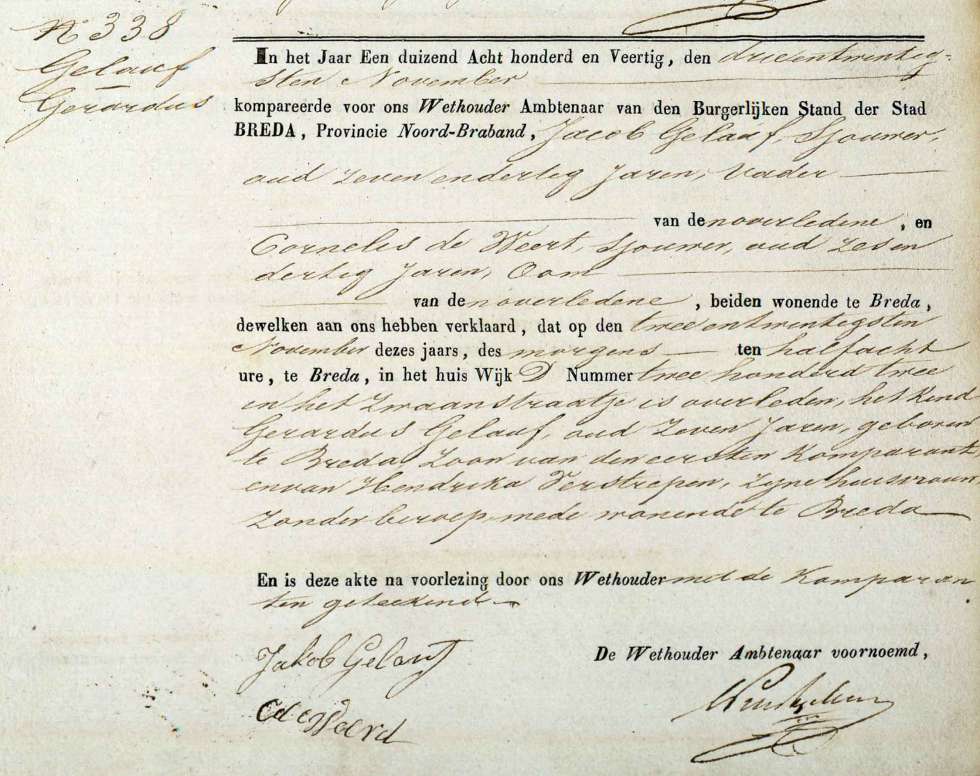 N° 338
Gelauf
Gerardus
In het Jaar Een duizend Acht honderd en Veertig, den drieentwintig-
sten November
kompareerde voor ons Wethouder Ambtenaar van den Burgerlijken Stand der Stad
BREDA, Provincie Noord-Braband, Jacob Gelauf, Sjouwer,
oud Zeven en dertig Jaren, Vader
van den overledene, en
Cornelis de Weert, Sjouwer, oud Zes en
dertig Jaren, Oom
van den overledene, beiden wonende te Breda,
dewelken aan ons hebben verklaard, dat op den twee entwintigsten
November dezes jaars, des morgens ten half acht
ure, te Breda, in het huis Wijk D Nummer twee honderd twee
in het Zwaanstraatje is overleden, het Kind
Gerardus Gelauf, oud Zeven Jaren, geboren
te Breda Zoon van den eersten Komparant,
en van Hendrika Verstrepen, Zyne huisvrouw
Zonder beroep, mede wonende te Breda
En is deze akte na voorlezing door ons Wethouder met de Komparan
ten geteekend
Jakob Gelauf
C de Weerd
De Wethouder Ambtenaar voornoemd,